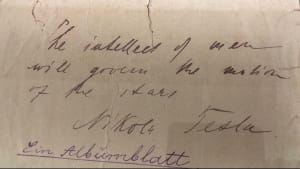 The intellect of men
will govern the motion
of the stars
Nikola Tesla
Ein Albumblatt